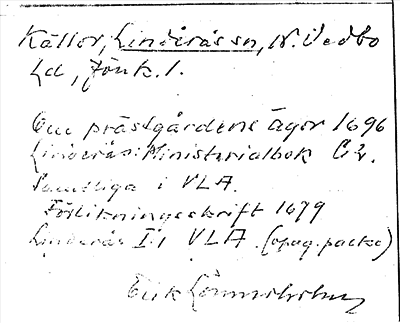 Källor, Linderås sn, N. Vedbo
hd, Jönk. l.
Om prästgårdens ägor 1696
Linderås: Ministerialbok C:2.
Samtliga i VLA.
Förlikningsskrift 1679
Linderås I:1 VLA. (opag. packe)
Erik